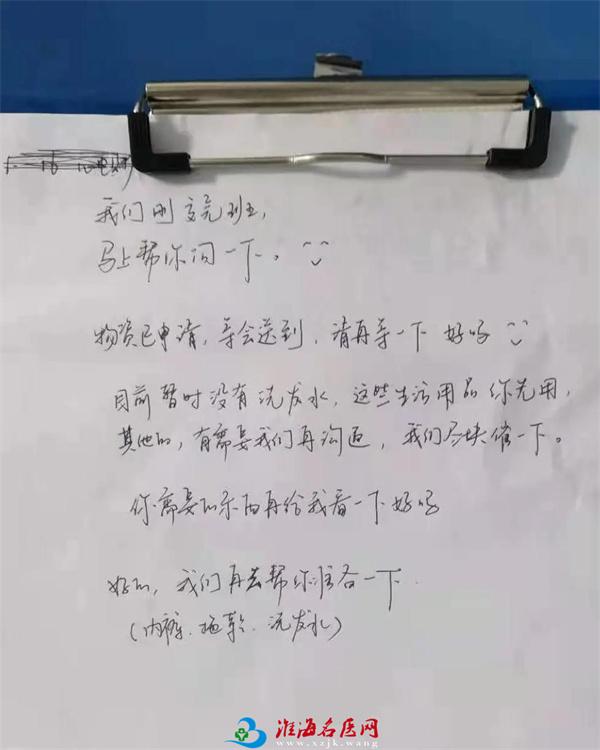 我们刚交完班,
马上帮你问一下。
物资已申请,等会送到,请再等一下 好吗
目前暂时没有洗发水,这些生活用品你先用,
其他的,有需要我们再沟通,我们尽快催一下。
你需要的东西再给我看一下好吗
好的,我们再去帮你准备一下.
(内裤.拖鞋.洗发水)
淮海名医网
www.xzjk.wang